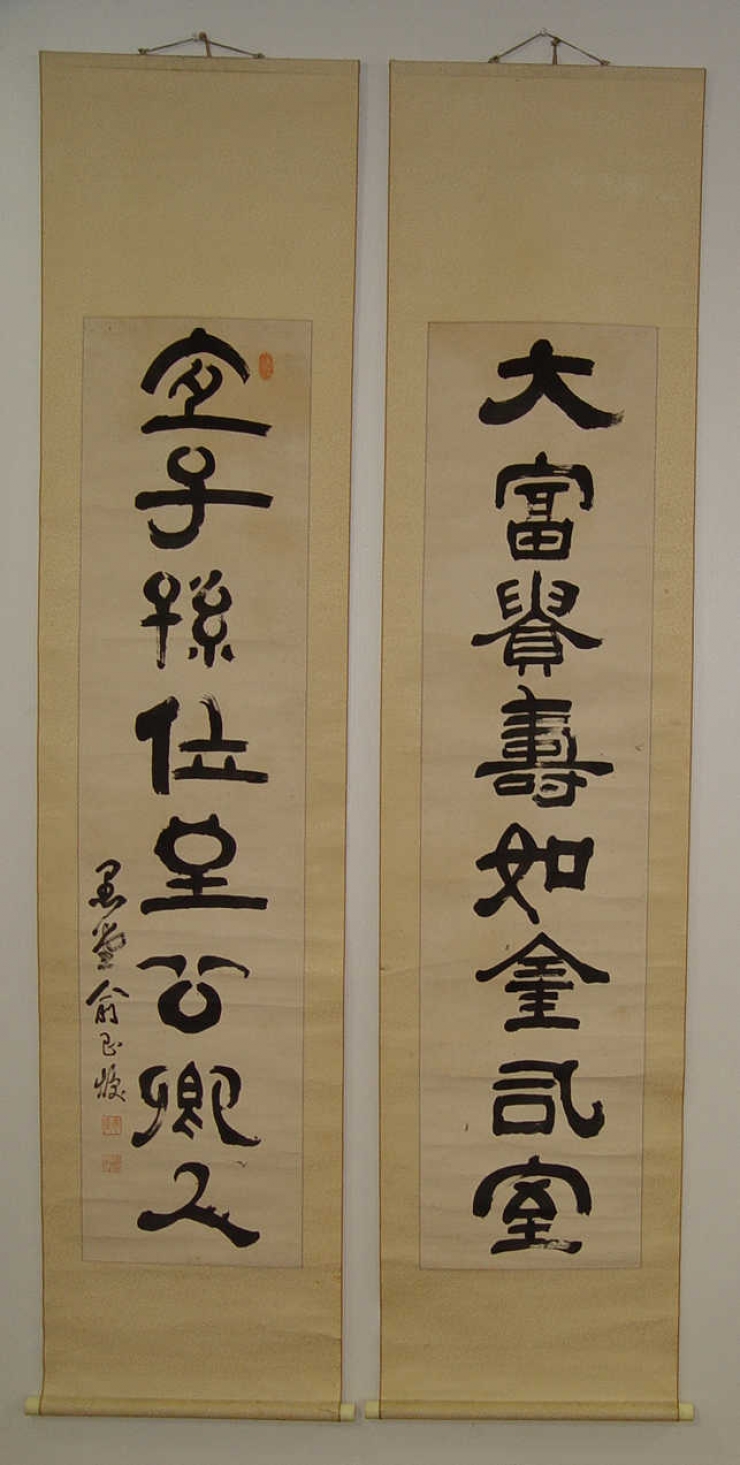 大富貴壽如金石室
宜子孫位至公卿人
愚堂俞印煥